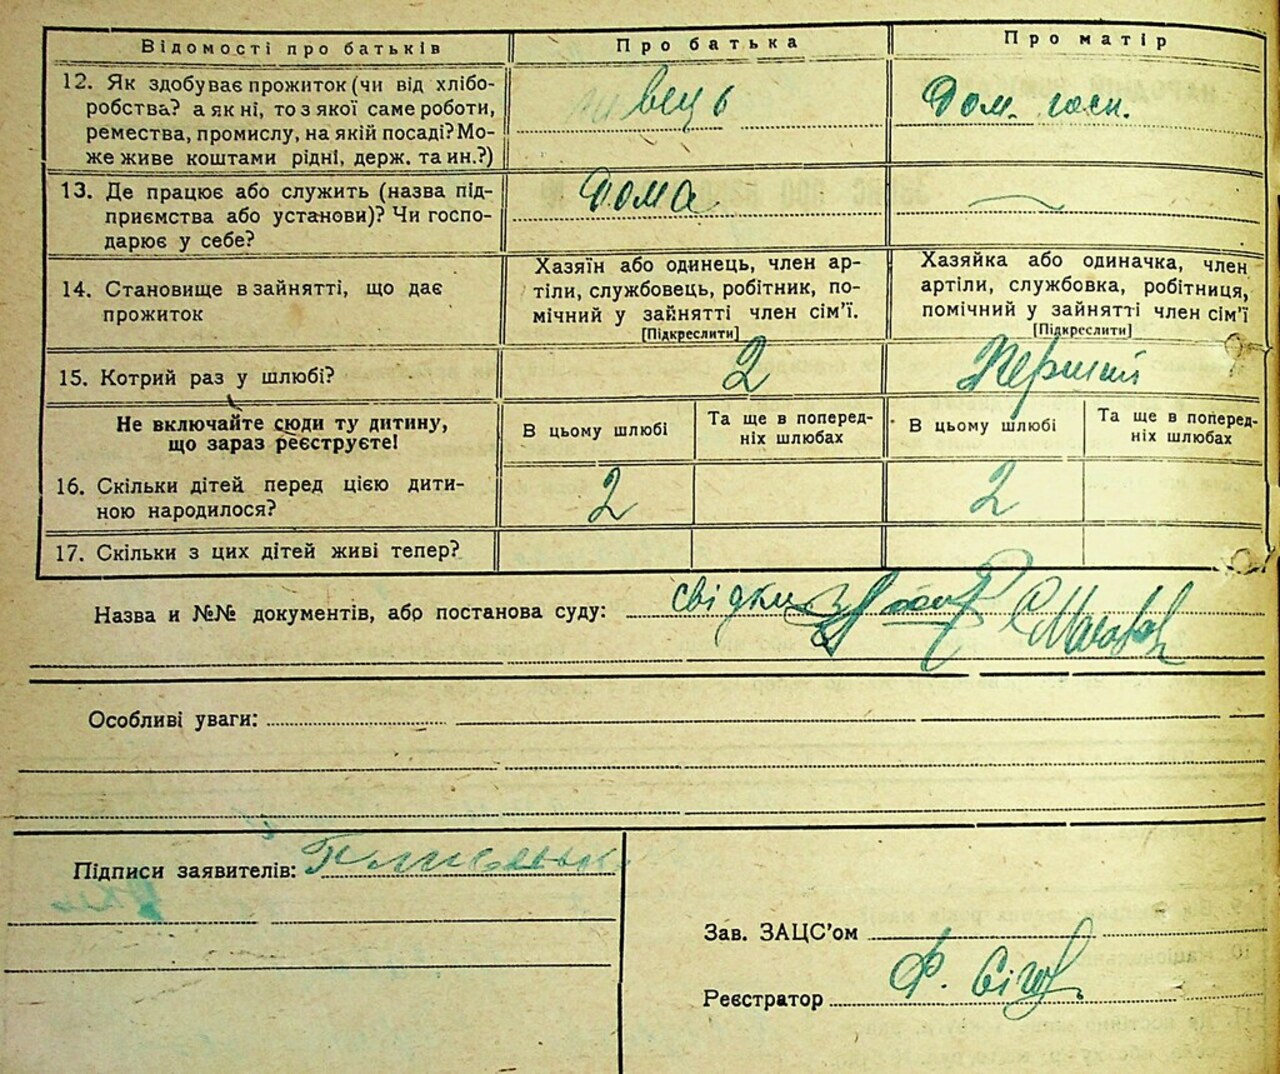 Відомості про батьків
Про батька
Про матір
12. Як здобуває прожиток (чи від хлібо-
робства? а як ні, то з якої саме роботи,
ремества, промислу, на якій посаді? Мо-
же живе коштами рідні, держ. та ин.?)
Дом. госп.
13. Де працює або служить (назва під-
приємства або установи)? Чи госпо-
дарює у себе?
Дома
14. Становище в зайнятті, що дає
прожиток
Хазяїн або одинець, член ар-
тіли, службовець, робітник, по-
мічний у зайнятті член сім'ї.
[Підкреслити]
Хазяйка або одиначка, член
артіли, службовка, робітниця,
помічний у зайнятті член сім'ї
[Підкреслити]
15. Котрий раз у шлюбі?
2
Перший
Не включайте сюди ту дитину,
що зараз реєструєте!
В цьому шлюбі
Та ще в поперед-
ніх шлюбах
В цьому шлюбі
Та ще в поперед-
ніх шлюбах
16. Скільки дітей перед цією дити-
ною народилося?
2
2
17. Скільки з цих дітей живі тепер?
Назва и №№ документів, або постанова суду: свідки
Особливі уваги:
Підписи заявителів:
Зав. ЗАЦС'ом
Реєстратор Ф.